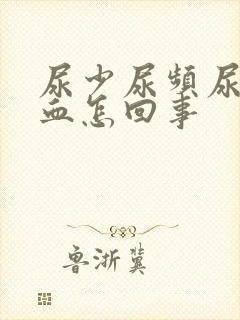 尿少尿频尿
血怎回事
鲁浙冀